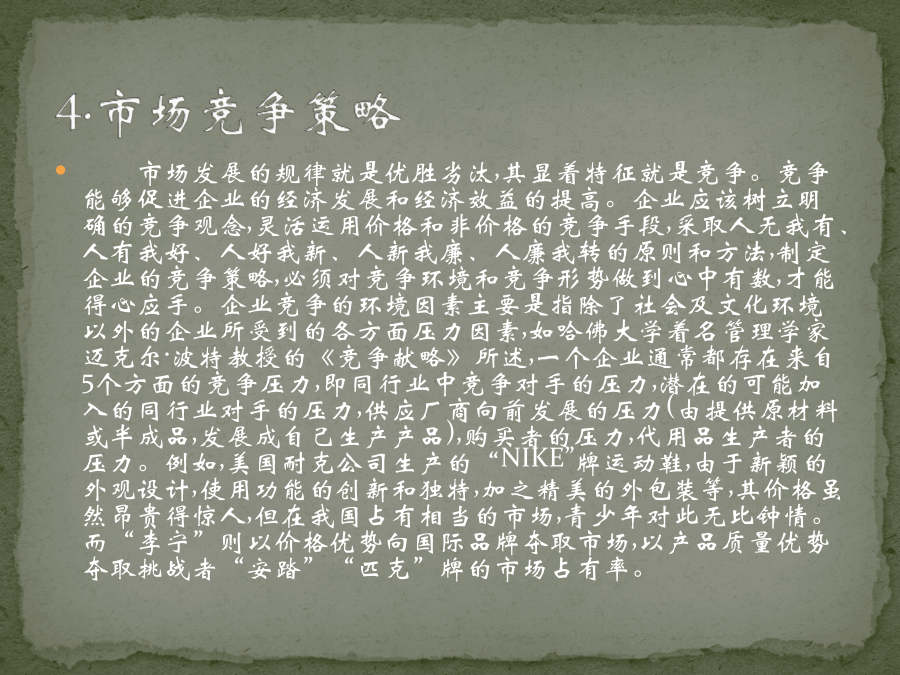 4.市场竞争策略
市场发展的规律就是优胜劣汰,其显着特征就是竞争。竞争
能够促进企业的经济发展和经济效益的提高。企业应该树立明
确的竞争观念,灵活运用价格和非价格的竞争手段,采取人无我有、
人有我好、人好我新、人新我廉、人廉我转的原则和方法,制定
企业的竞争策略,必须对竞争环境和竞争形势做到心中有数,才能
得心应手。企业竞争的环境因素主要是指除了社会及文化环境
以外的企业所受到的各方面压力因素,如哈佛大学着名管理学家
迈克尔·波特教授的《竞争献略》所述,一个企业通常都存在来自
5个方面的竞争压力,即同行业中竞争对手的压力,潜在的可能加
入的同行业对手的压力,供应厂商向前发展的压力(由提供原材料
或半成品,发展成自己生产产品),购买者的压力,代用品生产者的
压力。例如,美国耐克公司生产的“NIKE”牌运动鞋,由于新颖的
外观设计,使用功能的创新和独特,加之精美的外包装等,其价格虽
然昂贵得惊人,但在我国占有相当的市场,青少年对此无比钟情。
而“李宁”则以价格优势向国际品牌夺取市场,以产品质量优势
夺取挑战者“安踏”“匹克”牌的市场占有率。